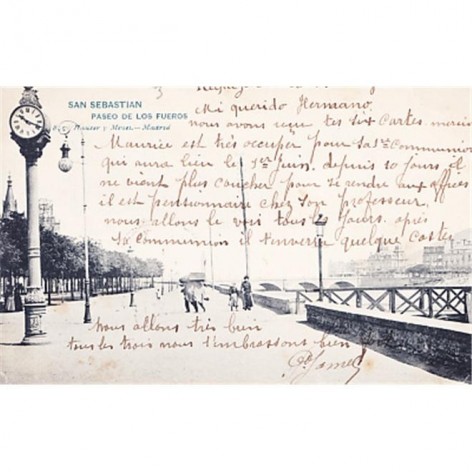 SAN SEBASTIAN
PASEO DE LOS FUEROS
Hauser y Menet.—Madrid
Mi querido Hermano,
nous avons reçu tes six cartes merci
Maurice est très occupé pour sa 1ere Communion
qui aura lieu le 1er Juin. depuis 10 jours il
ne vient plus coucher pour se rendre aux offices
il est pensionnaire chez son professeur,
nous allons le voir tous les jours. après
sa communion il t'enverra quelque cartes
nous allons très bien
tous les trois nous t'embrassons bien